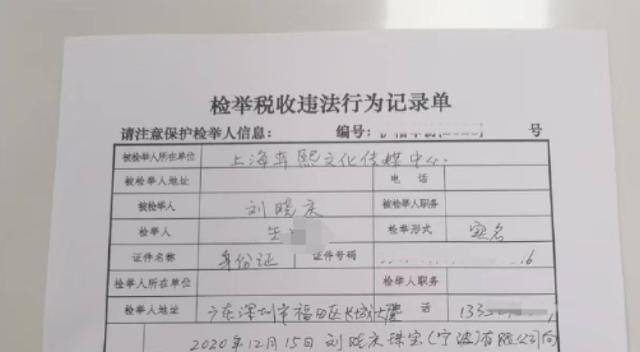 检举税收违法行为记录单
请注意保护检举人信息： 编号： 号
被检举人所在单位 上海弈熙文化传媒中心
被检举人地址 电话
被检举人 刘晓庆 被检举人职务
检举人 检举形式 实名
证件名称 身份证 证件号码 16
检举人所在单位 检举人职务
检举人地址 广东深圳市福田区长城大厦 话 133
2020年12月15日刘晓庆珠宝(宁波)有限公司向